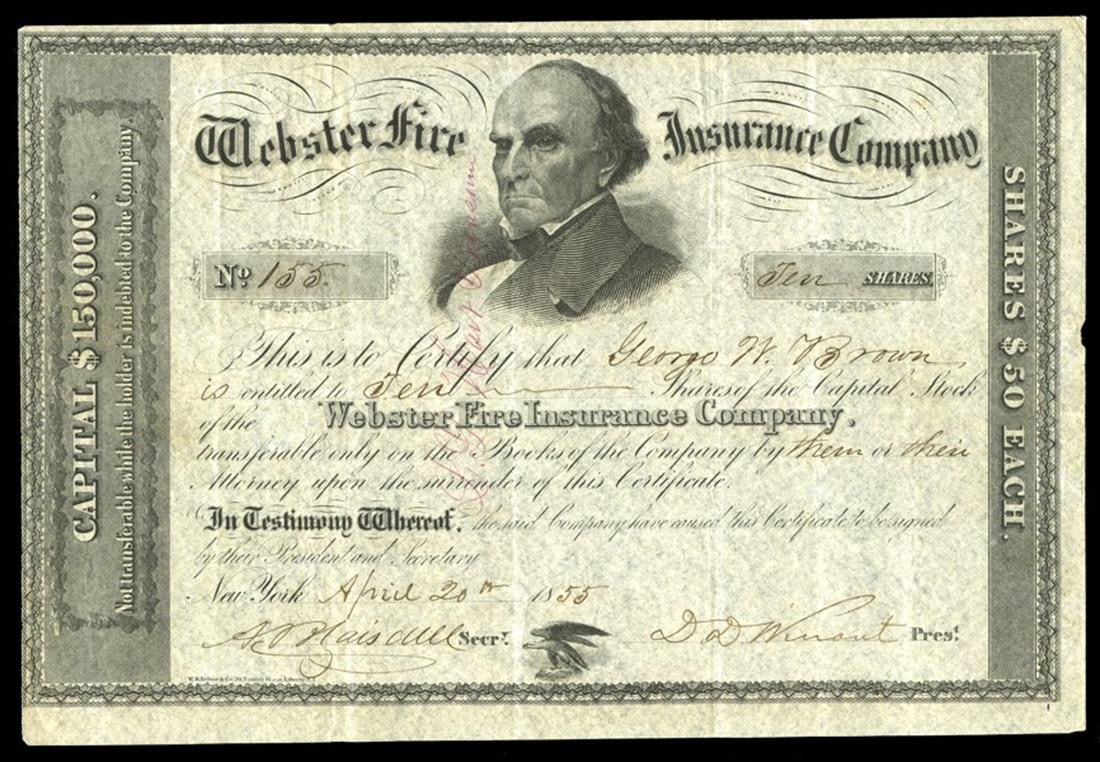 Webster Fire Insurance Company
CAPITAL $150,000.
Not transferable while the holder is indebted to the Company.
No. 155.
Ten SHARES.
SHARES $50 EACH.
This is to Certify that George W. Brown
is entitled to Ten Shares of the Capital Stock
of the Webster Fire Insurance Company.
transferable only on the Books of the Company by them or their
Attorney upon the surrender of this Certificate.
In Testimony Whereof, the said Company have caused this Certificate to be signed
by their President and Secretary
New York April 20th 1855
Secry.
D D Winant Prest.